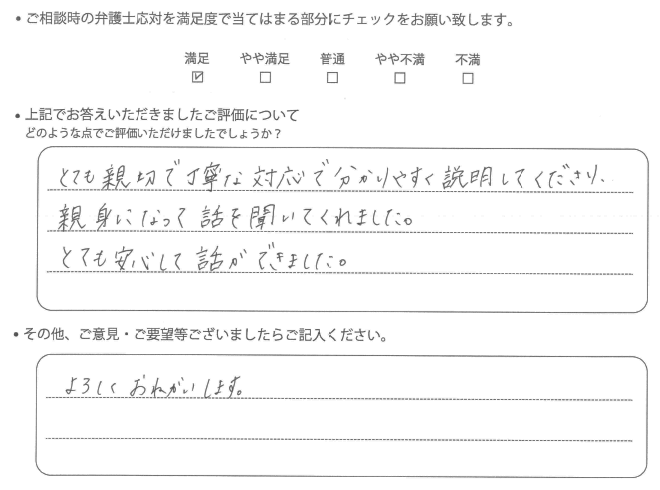 • ご相談時の弁護士応対を満足度で当てはまる部分にチェックをお願い致します。
満足 やや満足 普通 やや不満 不満
☑ ☐ ☐ ☐ ☐
• 上記でお答えいただきましたご評価について
どのような点でご評価いただけましたでしょうか？
とても親切で丁寧な対応で分かりやすく説明してくださり、
親身になって話を聞いてくれました。
とても安心して話ができました。
• その他、ご意見・ご要望等ございましたらご記入ください。
よろしくおねがいします。